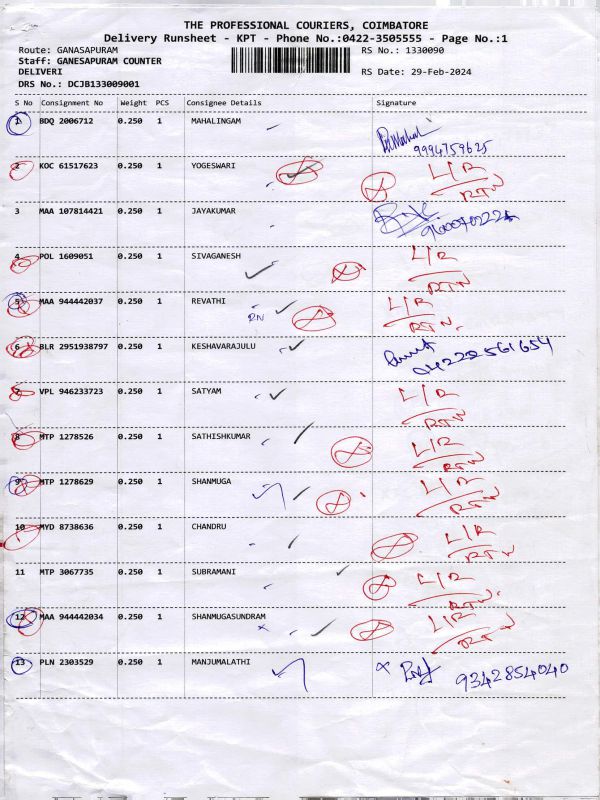 THE PROFESSIONAL COURIERS, COIMBATORE
Delivery Runsheet - KPT - Phone No.:0422-3505555 - Page No.:1
Route: GANASAPURAM RS No.: 1330090
Staff: GANESAPURAM COUNTER
DELIVERI RS Date: 29-Feb-2024
DRS No.: DCJB133009001
S No Consignment No Weight PCS Consignee Details Signature
1 BDQ 2006712 0.250 1 MAHALINGAM
9994759625
2 KOC 61517623 0.250 1 YOGESWARI L/R
RTN
3 MAA 107814421 0.250 1 JAYAKUMAR
4 POL 1609051 0.250 1 SIVAGANESH L/R
RTN
5 MAA 944442037 0.250 1 REVATHI L/R
RN RTN.
6 BLR 2951938797 0.250 1 KESHAVARAJULU
04222561654
7 VPL 946233723 0.250 1 SATYAM L/R
RTN
8 MTP 1278526 0.250 1 SATHISHKUMAR L/R
RTN
9 MTP 1278629 0.250 1 SHANMUGA L/R
RTN
10 MYD 8738636 0.250 1 CHANDRU L/R
RTN
11 MTP 3067735 0.250 1 SUBRAMANI L/R
RTN.
12 MAA 944442034 0.250 1 SHANMUGASUNDRAM L/R
RTN
13 PLN 2303529 0.250 1 MANJUMALATHI x
9342854040